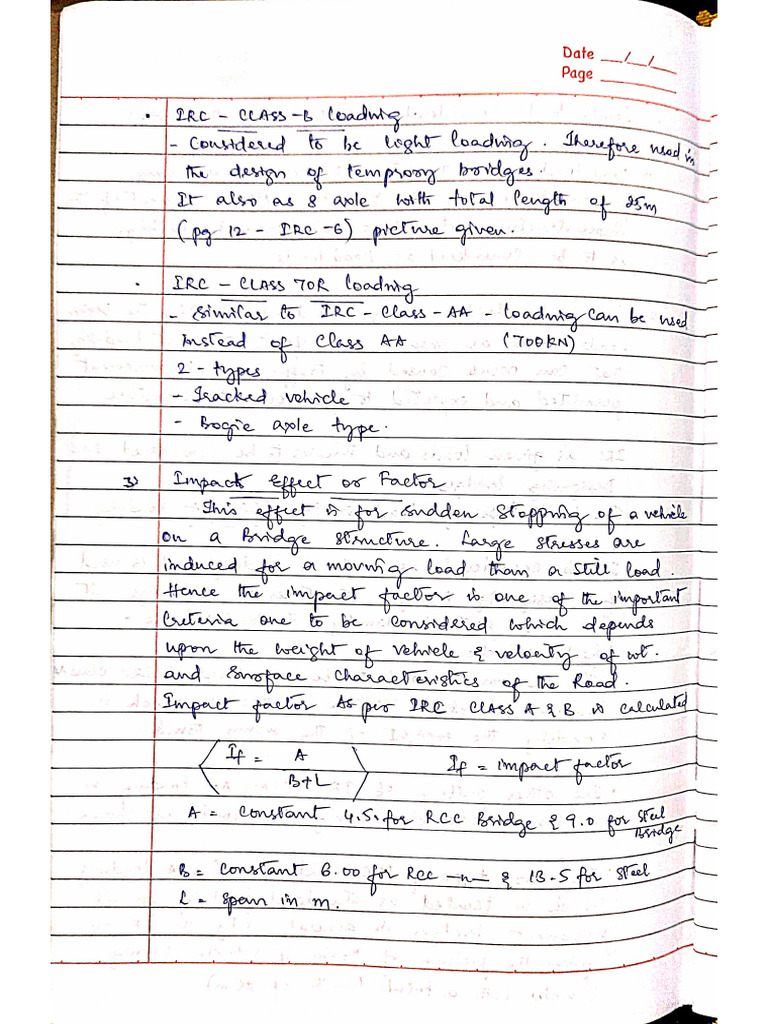 Date __/__/__
Page ______
• IRC - CLASS -B Loading.
- Considered to be light loading. Therefore used in
the design of temprory bridges.
It also as 8 axle with total length of 25m
(pg 12 - IRC -6) picture given.
• IRC - CLASS 70R loading
- Similar to IRC - Class - AA - loading can be used
instead of class AA (700KN)
2 - types
- Tracked vehicle
- Bogie axle type.
3) Impact Effect or Factor
This effect is for sudden stopping of a vehicle
on a Bridge structure. Large stresses are
induced for a moving load than a still load.
Hence the impact factor is one of the important
Criteria one to be considered which depends
upon the weight of vehicle & velocity of wt.
and Surface characteristics of the Road.
Impact factor As per IRC CLASS A & B is calculated
If = A If = impact factor
B+L
A = constant 4.5 for RCC Bridge & 9.0 for Steel
Bridge
B = constant 6.00 for RCC —"— & 13.5 for steel
L = Span in m.